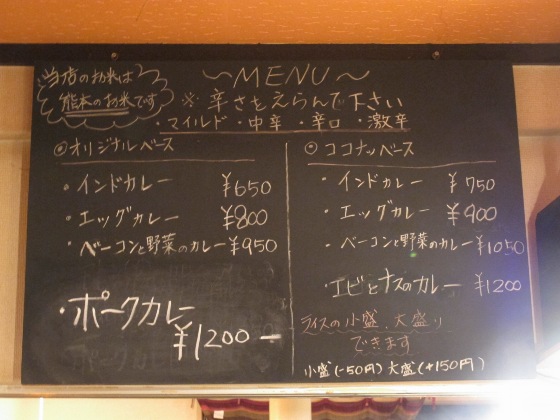 当店のお米は
熊本のお米です
〜MENU〜
※辛さをえらんで下さい
・マイルド・中辛・辛口・激辛
◎オリジナルベース
・インドカレー ¥650
・エッグカレー ¥800
・ベーコンと野菜のカレー ¥950
・ポークカレー
¥1200−
◎ココナッツベース
・インドカレー ¥750
・エッグカレー ¥900
・ベーコンと野菜のカレー ¥1050
・エビとナスのカレー ¥1200
ライスの小盛、大盛り
できます
小盛(-50円) 大盛(+150円)